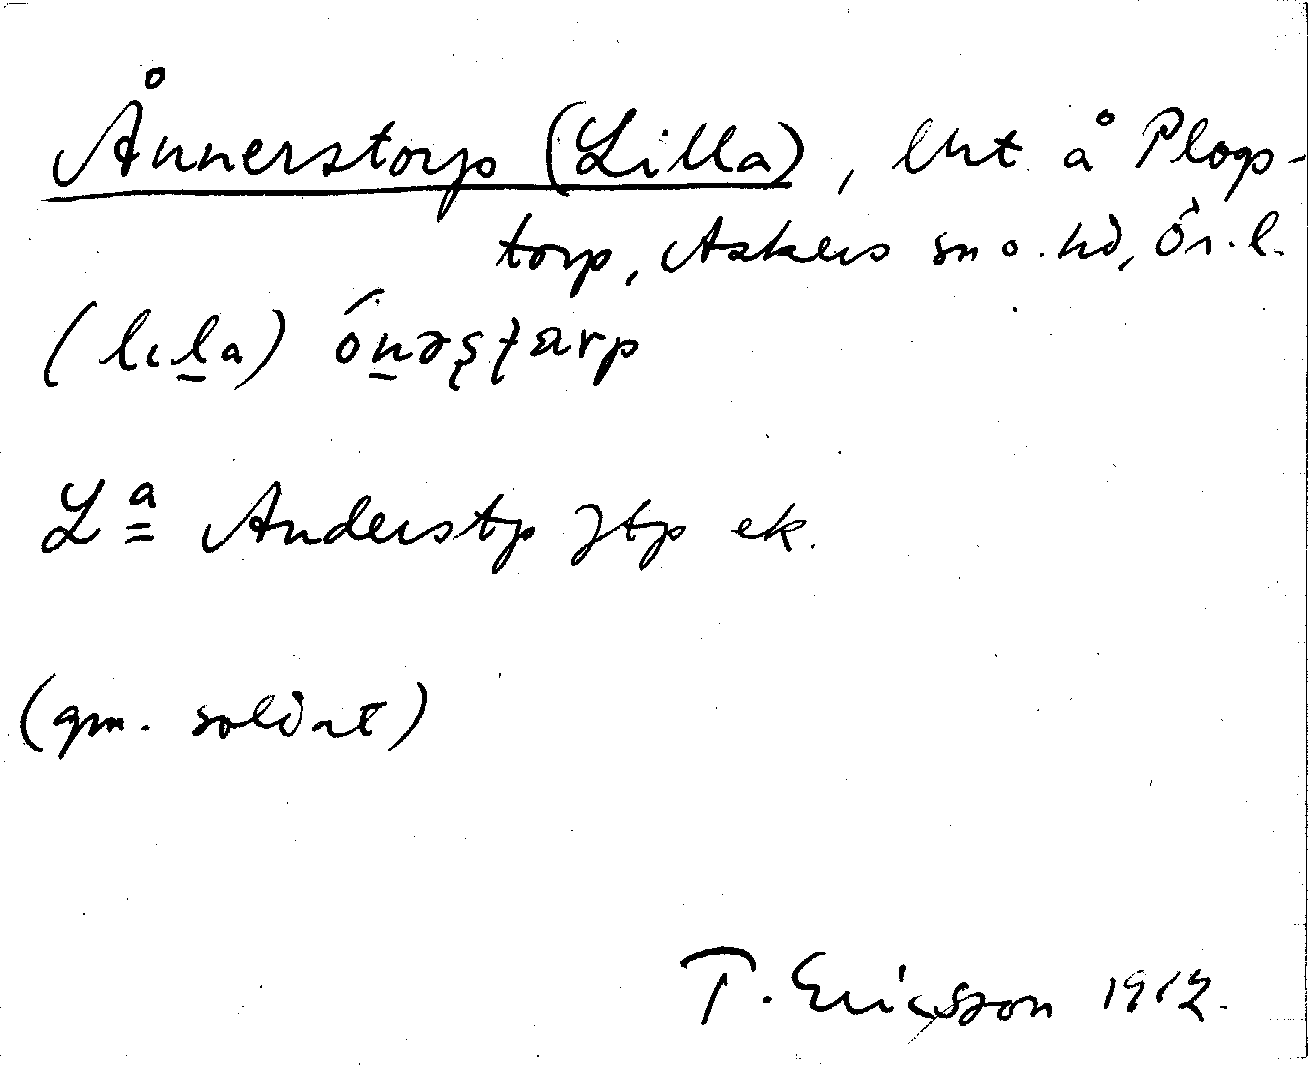 Ånnerstorp (Lilla), lht å Plogs-
torp, Askers sn o. hd, Ör. l.
(lɩḻa) óṉəʂʈarp
Lª Anderstp Jtp ek.
(gm. soldat)
T. Ericsson 1912.